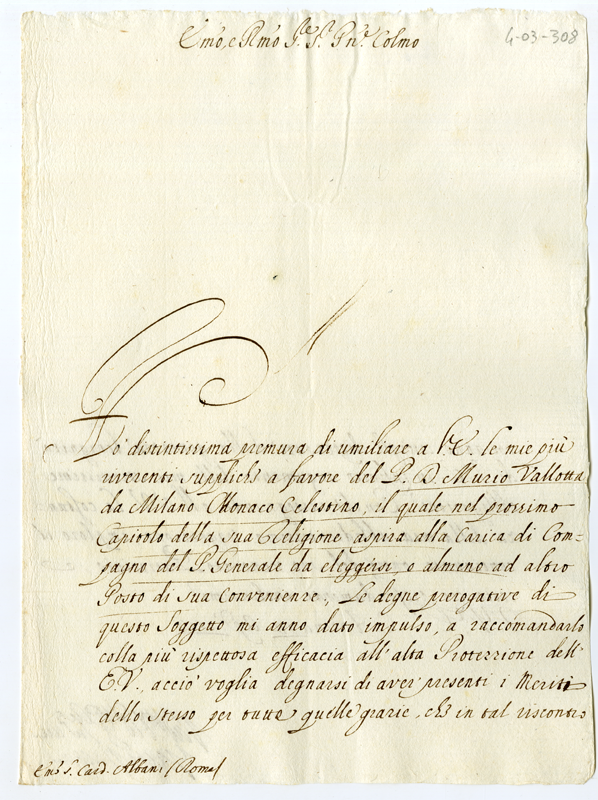 Emo, e Rmo Sre. Sr. Pne. Colmo
4-03-308
Ho' distintissima premura di umiliare a V.E. le mie più
riverenti suppliche a favore del P. D. Muzio Vallotta
da Milano Monaco Celestino, il quale nel prossimo
Capitolo della sua Religione aspira alla Carica di Com=
pagno del P. Generale da eleggersi, o almeno ad altro
Posto di sua Convenienze. Le degne prerogative di
questo Soggetto mi anno dato impulso, a raccomandarlo
colla più rispettosa efficacia all'alta Protezzione dell'
E.V., acciò voglia degnarsi di aver presenti i Meriti
dello stesso per tutte quelle grazie, che in tal riscontro
Emo S. Card. Albani (Roma)